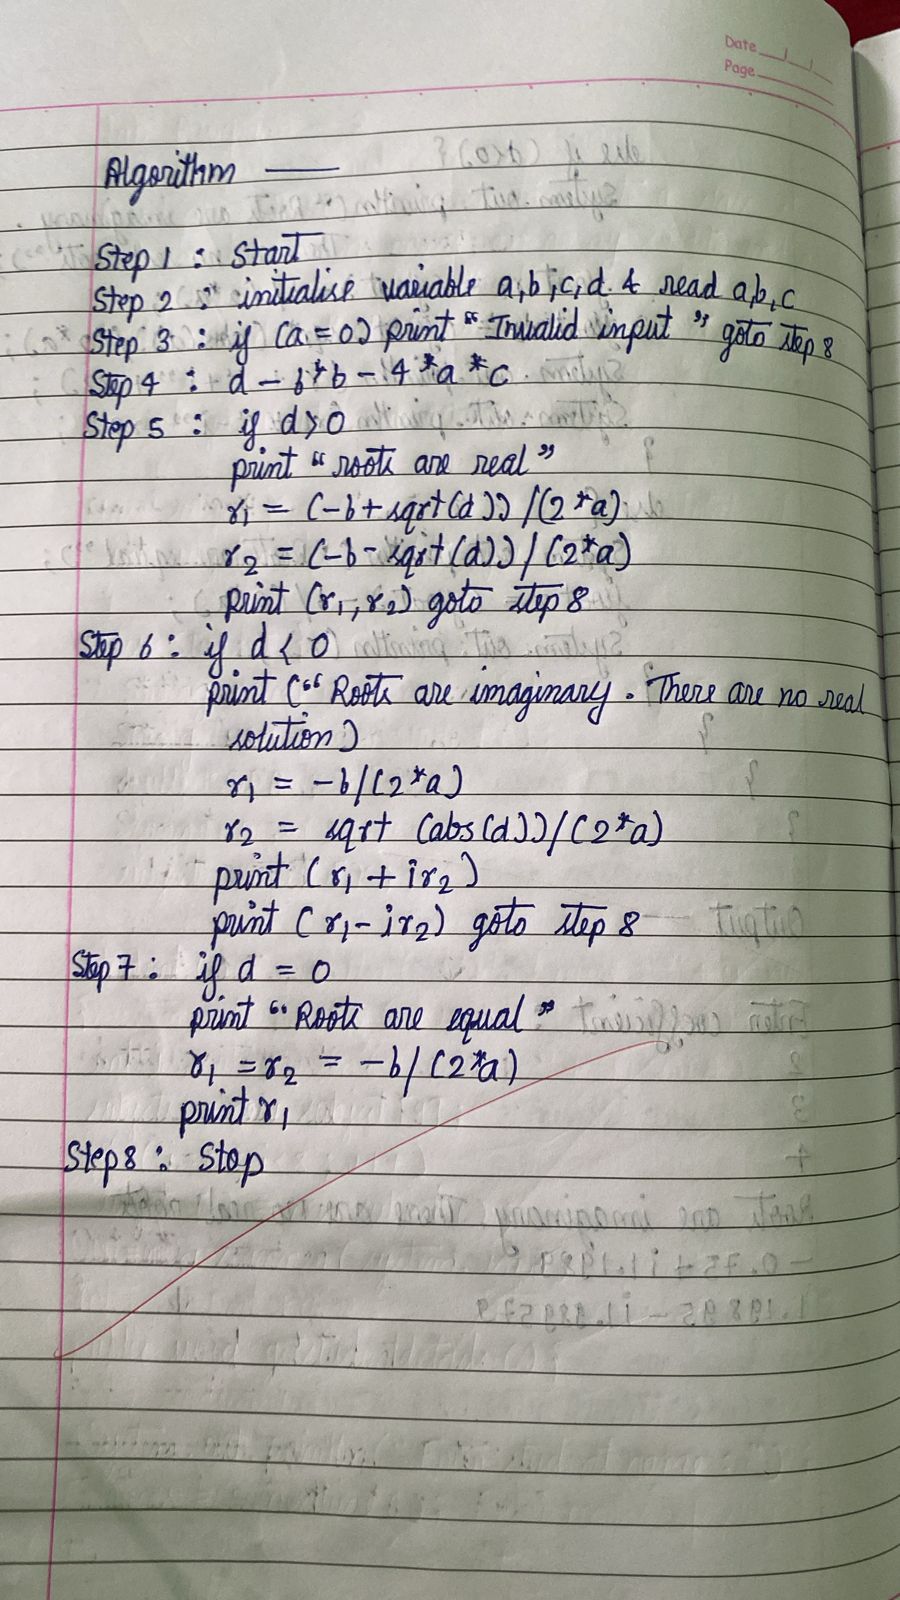 Date
Page
Algorithm ——
Step 1 : Start
Step 2 : initialise variable a,b,c,d & read a,b,c
Step 3 : if (a = 0) print “Invalid input” goto step 8
Step 4 : d - b*b - 4*a*c
Step 5 : if d > 0
print “roots are real”
r1 = (-b+sqrt(d))/(2*a)
r2 = (-b-sqrt(d))/(2*a)
print (r1,r2) goto step 8
Step 6 : if d < 0
print (“Roots are imaginary. There are no real
solution)
r1 = -b/(2*a)
r2 = sqrt (abs(d))/(2*a)
print (r1 + ir2)
print (r1 - ir2) goto step 8
Step 7 : if d = 0
print “Roots are equal”
r1 = r2 = -b/(2*a)
print r1
Step 8 : Stop